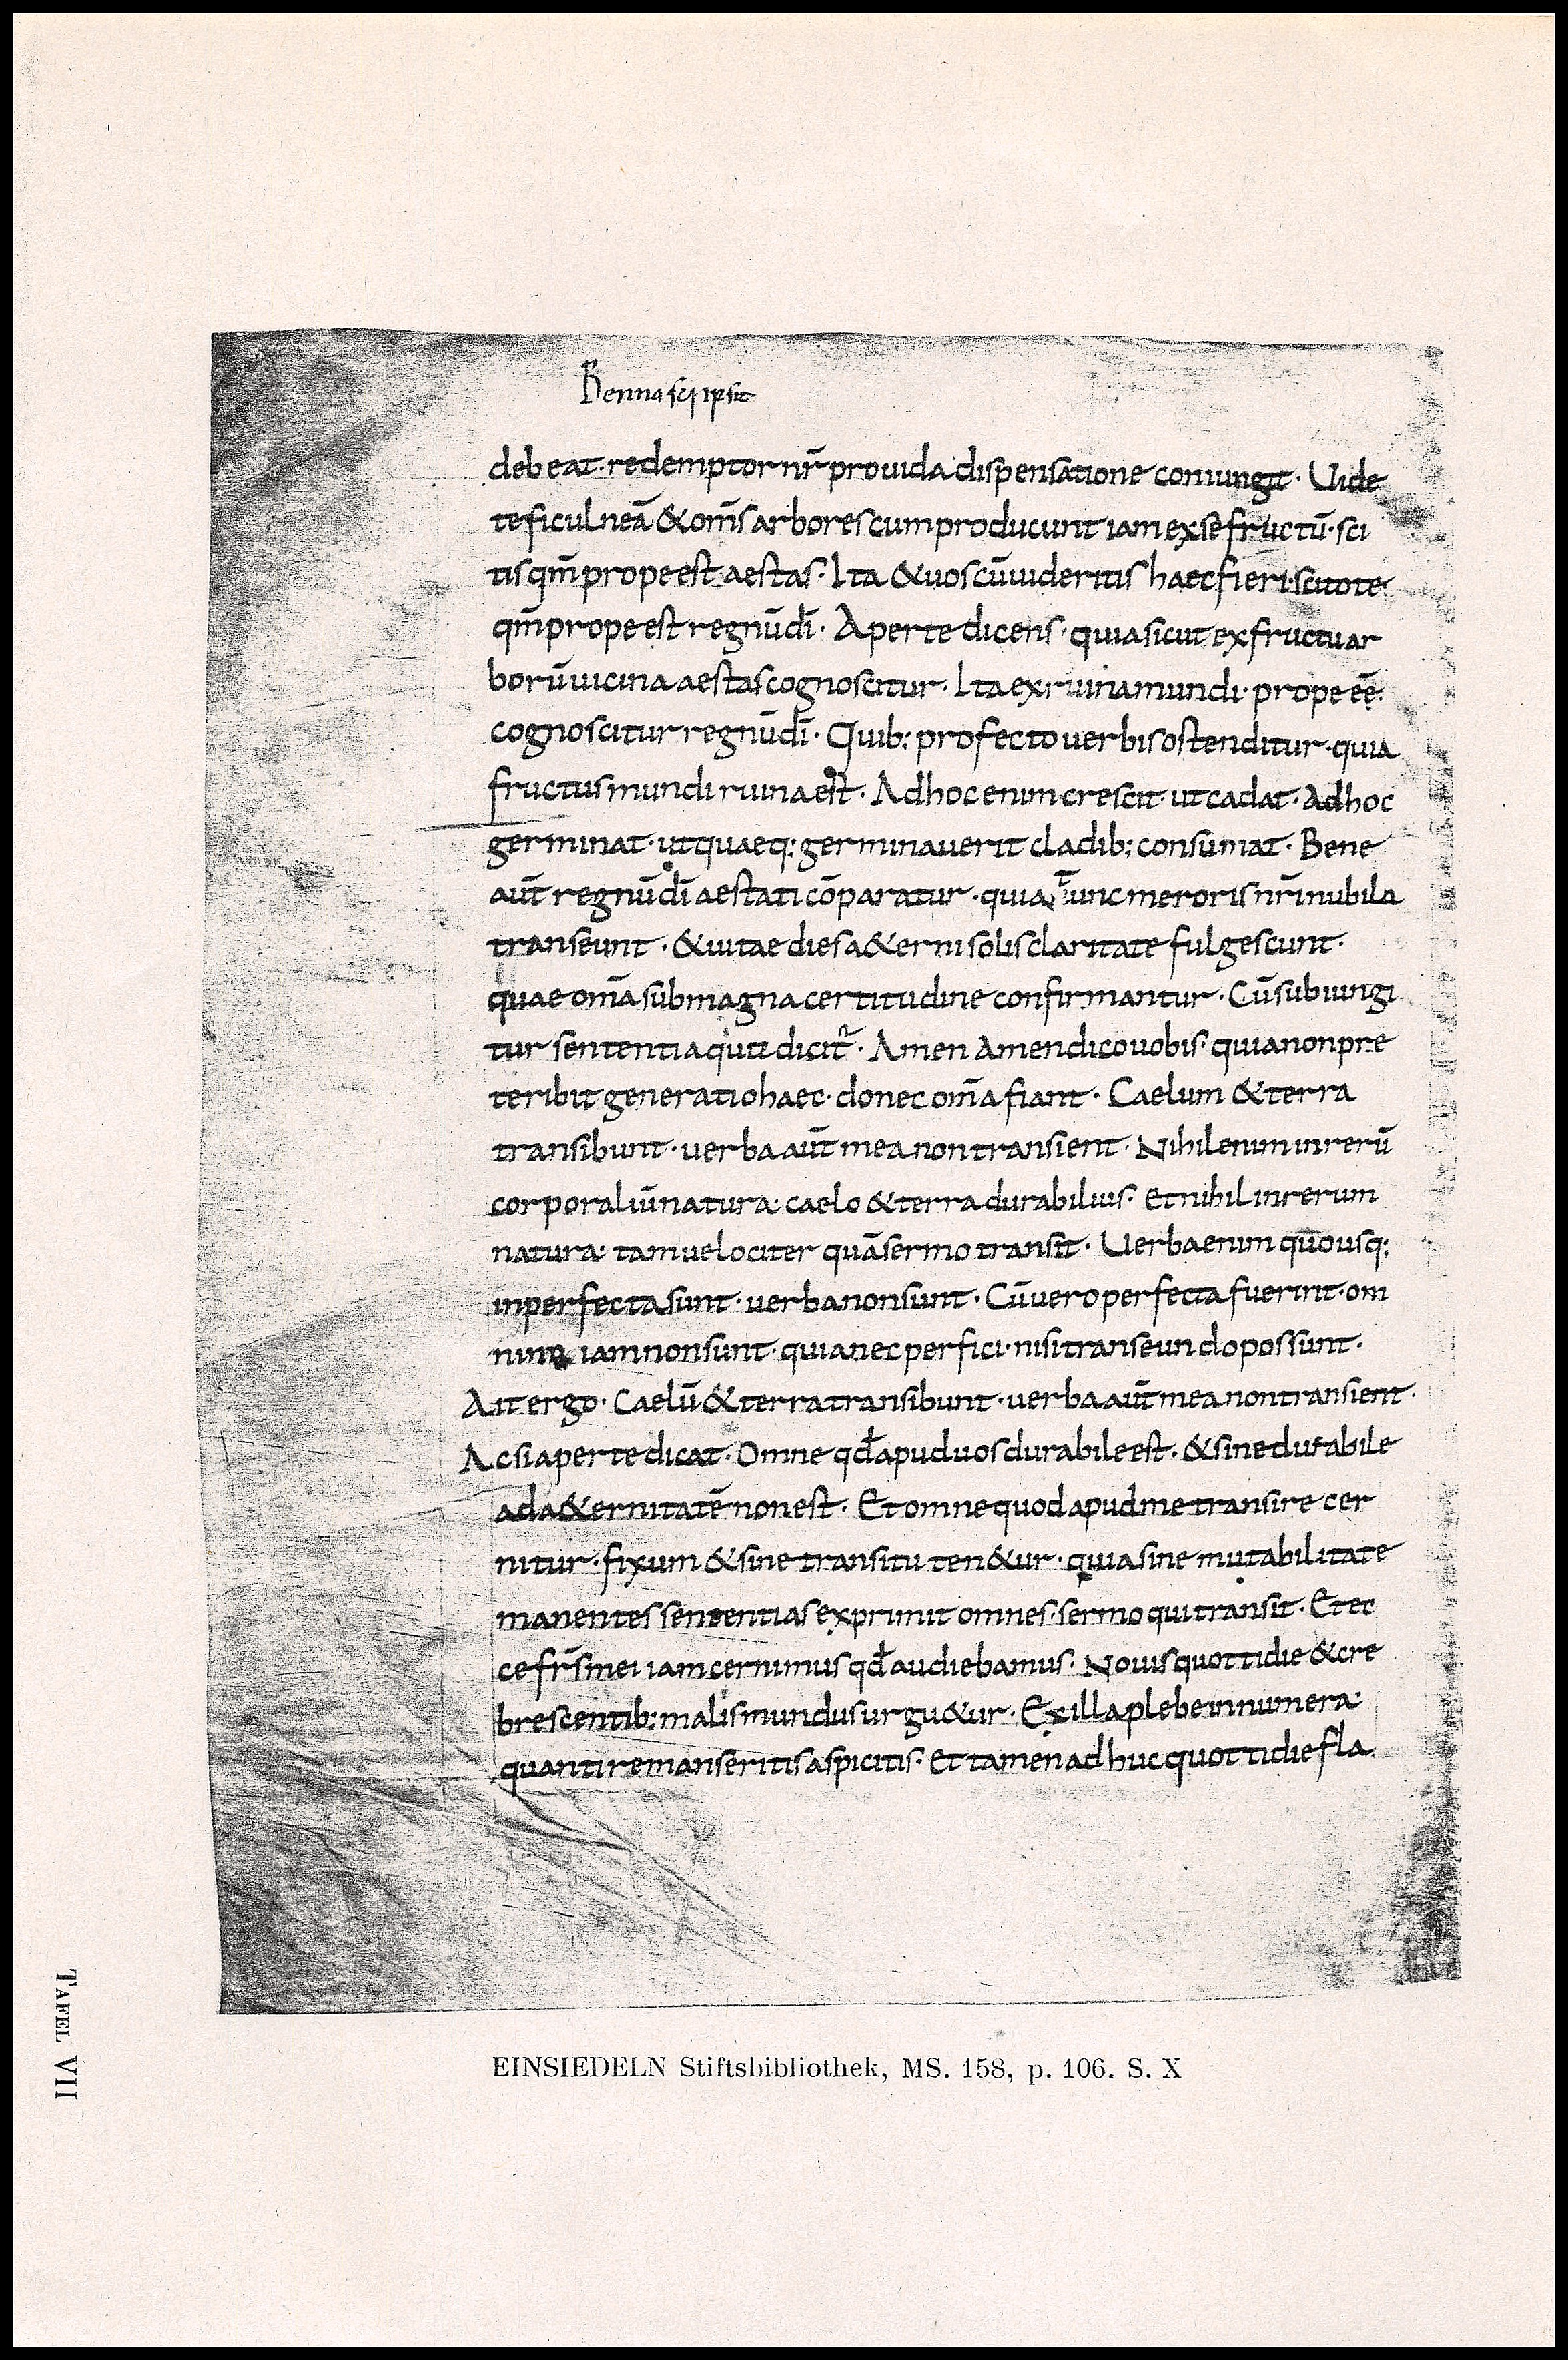 Benno scripsit
debeat· redemptor nr̄ prouida dispensatione coniungit· Uide
te ficulneā & om̄s arbores cum producunt iam ex se fructū· sci
tis qm̄ prope est aestas· Ita & uos cū uideritis haec fieri· scitote·
qm̄ prope est regnū dī· Aperte dicens· quia sicut ex fructu ar
borū uicina aestas cognoscitur· Ita ex ruina mundi· prope eē·
cognoscitur regnū dī· Quib; profecto uerbis ostenditur· quia
fructus mundi ruina est· Ad hoc enim crescit· ut cadat· Ad hoc
germinat· ut quaeq; germinauerit cladib; consumat· Bene
aut̄ regnū dī aestati cōparatur· quia tunc meroris nr̄i nubila
transeunt· & uitae dies a&erni solis claritate fulgescunt·
quae om̄a sub magna certitudine confirmantur· Cū subiungi
tur sententia qua dicit᷑· Amen Amen dico uobis· quia non pre
teribit generatio haec· donec om̄a fiant· Caelum & terra
transibunt· uerba aut̄ mea non transient· Nihil enim in rerū
corporaliū natura· caelo & terra durabilius· Et nihil in rerum
natura· tam uelociter quā sermo transit· Uerba enim quousq;
inperfecta sunt· uerba non sunt· Cū uero perfecta fuerint· om
nino iam non sunt· quia nec perfici· nisi transeundo possunt·
Ait ergo· Caelū & terra transibunt· uerba aut̄ mea non transient·
Ac si aperte dicat· Omne qd̄ apud uos durabile est· & sine durabile
ad a&ernitatē non est· Et omne quod apud me transire cer
nitur· fixum & sine transitu ten&ur· quia sine mutabilitate
manentes sententias exprimit omnes· sermo qui transit· Et ec
ce fr̄s mei iam cernimus qd̄ audiebamus· Nouis quottidie & cre
brescentib; malis mundus urgu&ur· Ex illa plebe innumera·
quanti remanseritis aspicitis· Et tamen adhuc quottidie fla
EINSIEDELN Stiftsbibliothek, MS. 158, p. 106. S. X
TAFEL VII